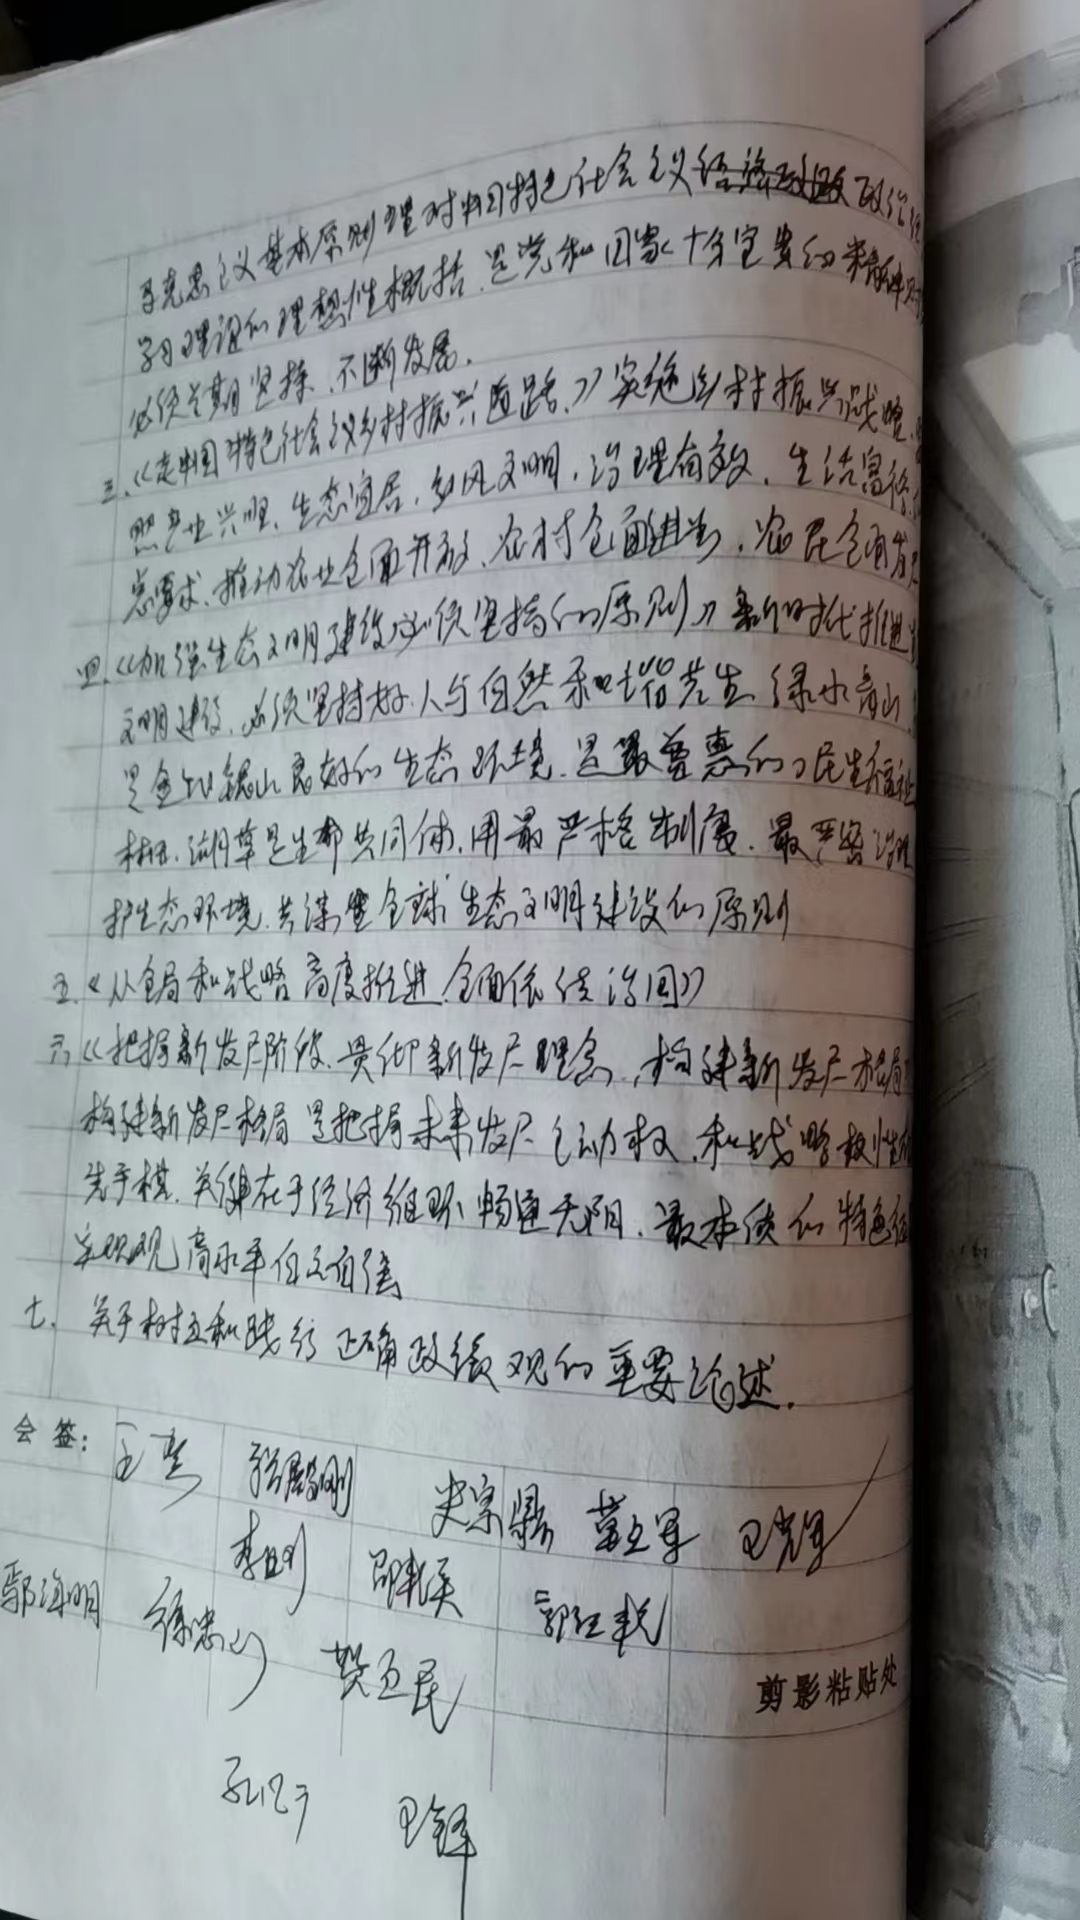 马克思主义基本原则理对中国特色社会主义经济政治
学习理论的理想性概括.是党和国家十分宝贵的精神财
必须长期坚持.不断发展.
三.《走中国特色社会主义乡村振兴道路》实施乡村振兴战略.
照产业兴旺、生态宜居、乡风文明、治理有效、生活富裕.
总要求、推动农业全面升级、农村全面进步、农民全面发展
四.《加强生态文明建设必须坚持的原则》新时代推进
文明建设.必须坚持好.人与自然和谐共生.绿水青山.
是金山银山良好的生态环境.是最普惠的民生福祉
林田.湖草是生命共同体.用最严格制度.最严密治理
护生态环境.共谋全球生态文明建设的原则
五.《从全局和战略高度推进.全面依法治国》
六《把握新发展阶段.贯彻新发展理念.构建新发展格局
构建新发展格局是把握未来发展主动权.和战略性
先手棋.关键在于经济循环畅通无阻.最本质的特色
实现高水平自立自强
七.关于树立和践行正确政绩观的重要论述.
会签:
史宗鼎 董立军 王光军
李刚
鄢海明 徐忠山 樊立民
剪影粘贴处
王锋